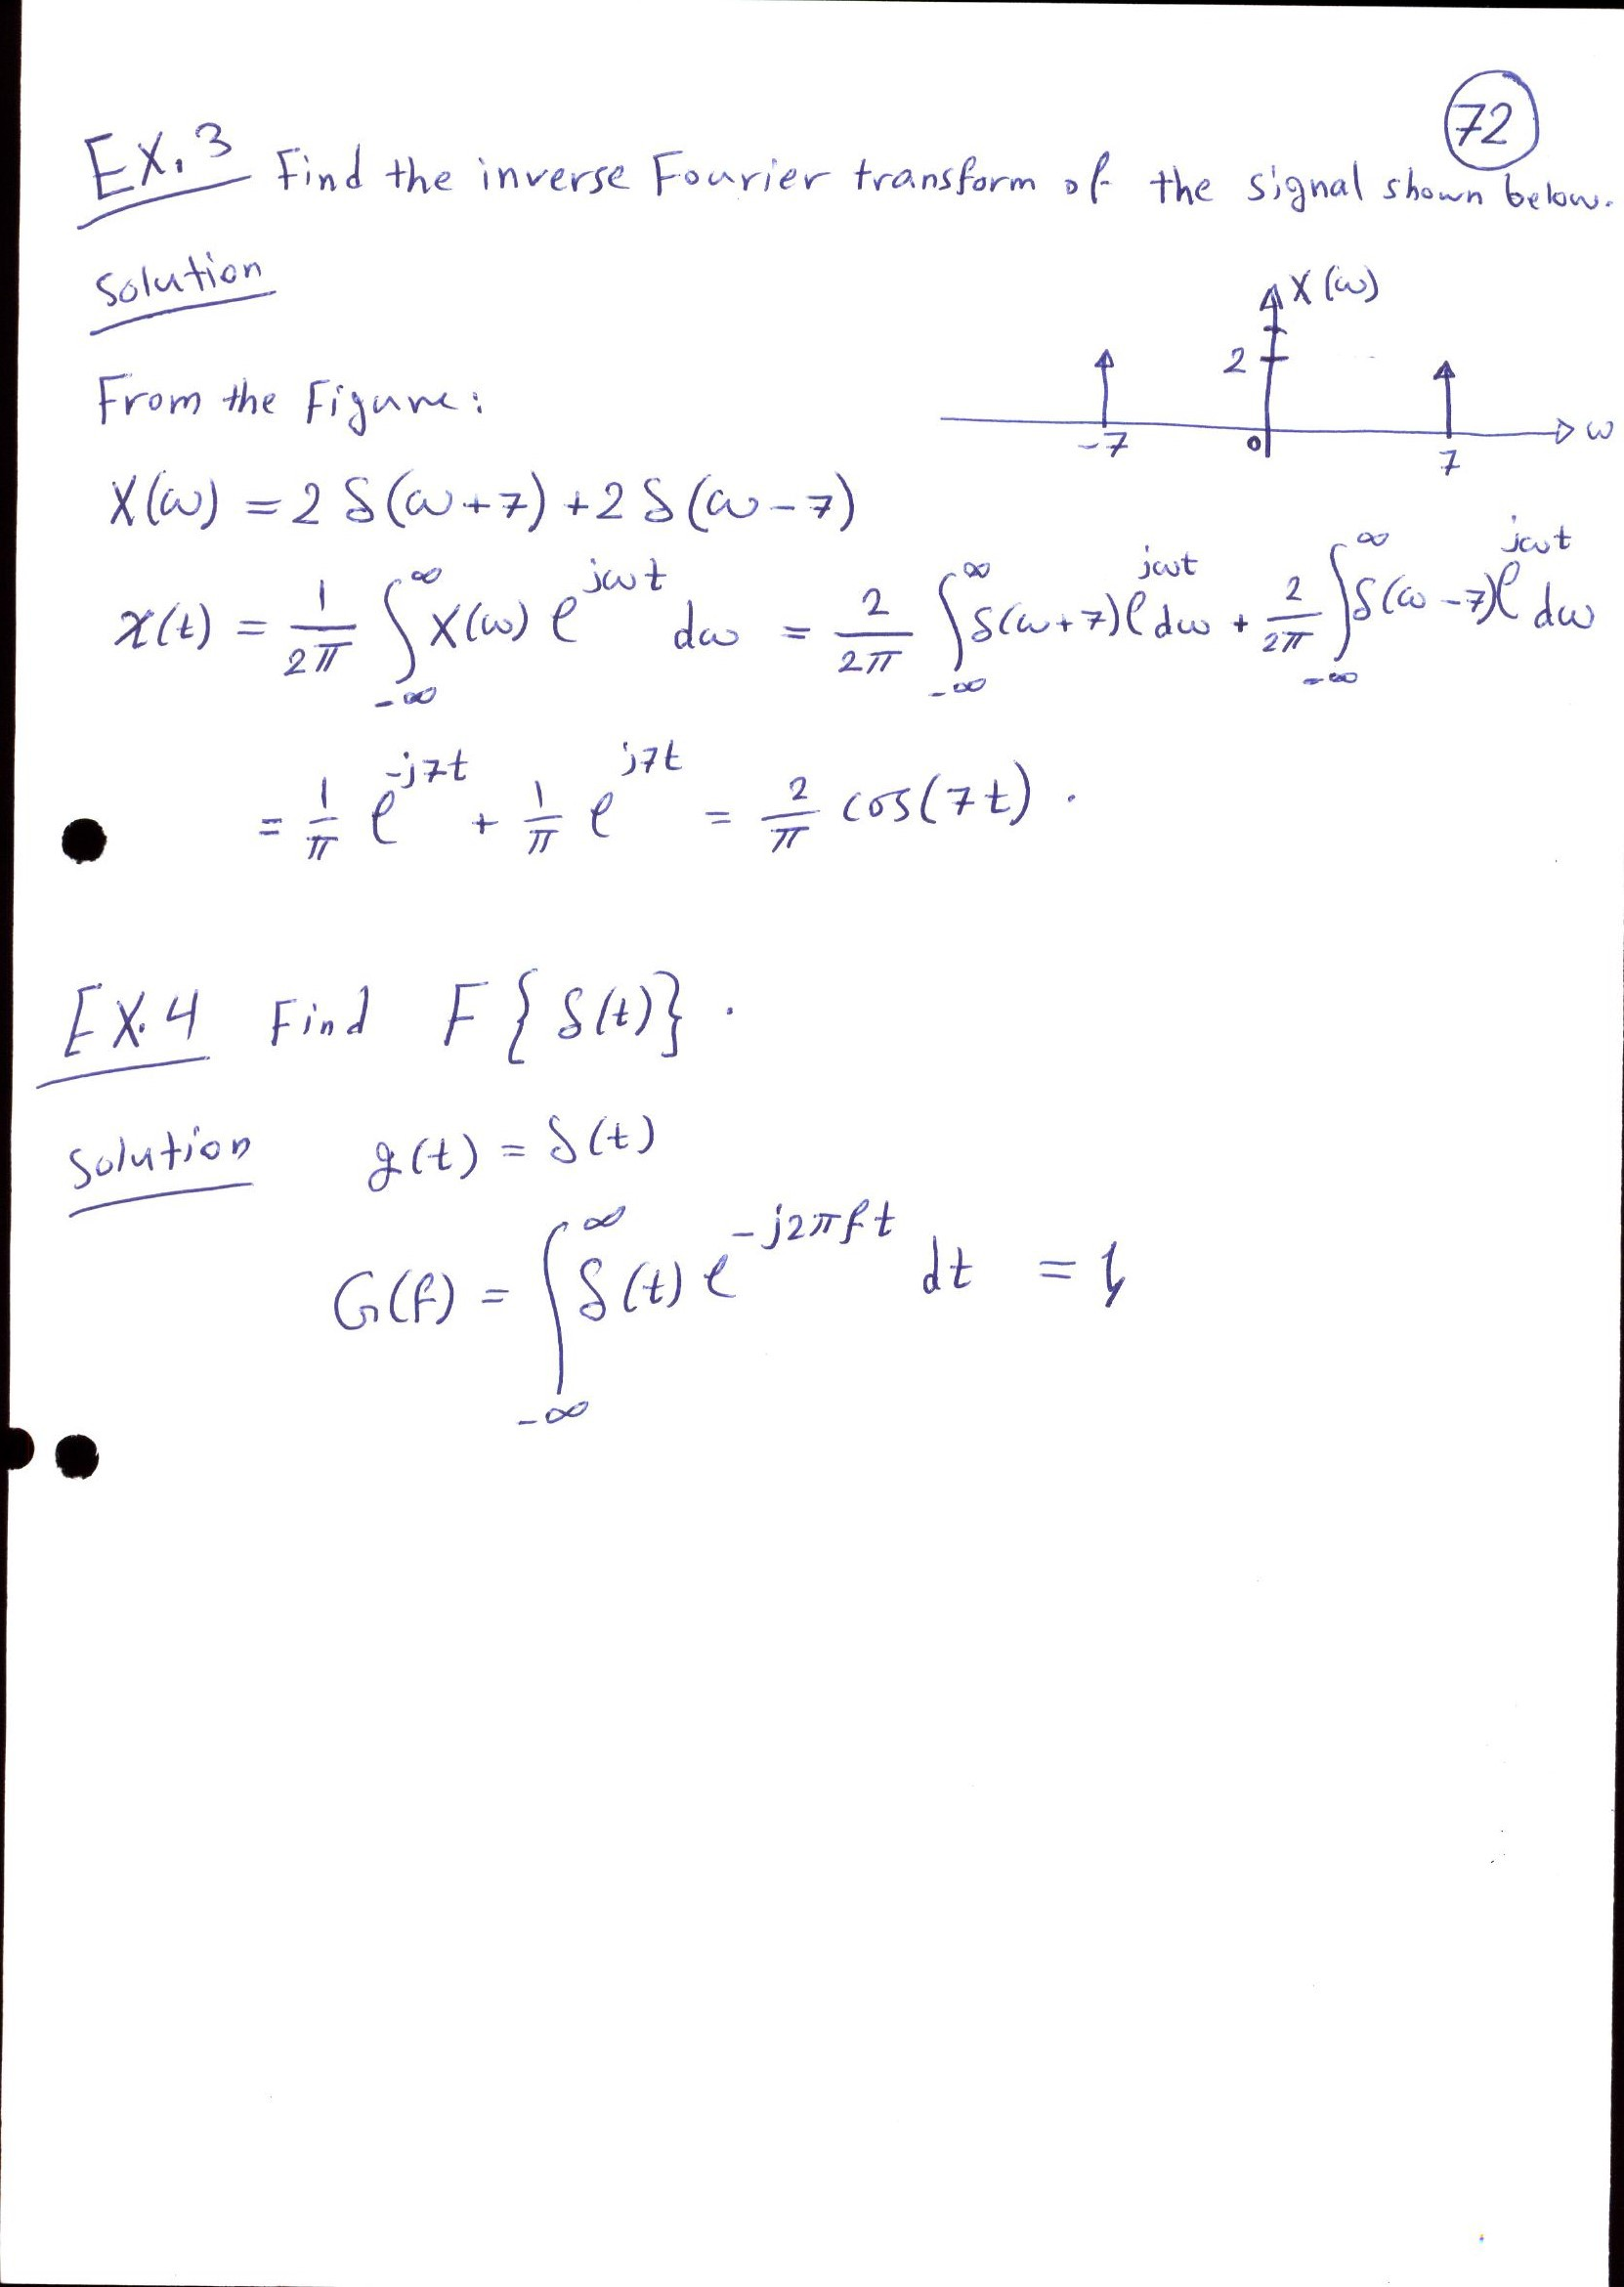 72
EX.3 Find the inverse Fourier transform of the signal shown below.
Solution
X(ω)
2
-7 0 7 ω
From the Figure:
X(ω) = 2 δ(ω+7) + 2 δ(ω-7)
x(t) = 1/2π ∫_{-∞}^{∞} X(ω) e^{jωt} dω = 2/2π ∫_{-∞}^{∞} δ(ω+7) e^{jωt} dω + 2/2π ∫_{-∞}^{∞} δ(ω-7) e^{jωt} dω
= 1/π e^{-j7t} + 1/π e^{j7t} = 2/π cos(7t).
EX.4 Find F{δ(t)}.
Solution g(t) = δ(t)
G(f) = ∫_{-∞}^{∞} δ(t) e^{-j2πft} dt = 1